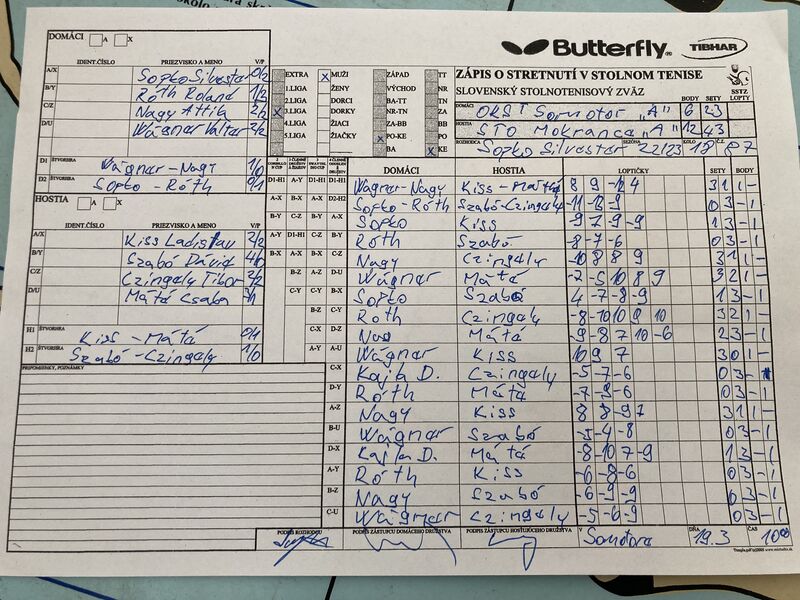 Butterfly
TIBHAR
DOMÁCI A X
ZÁPIS O STRETNUTÍ V STOLNOM TENISE
SLOVENSKÝ STOLNOTENISOVÝ ZVÄZ
SSTZ
IDENT.ČÍSLO PRIEZVISKO A MENO V/P
A/X Sopko Silvester 0/2
B/Y Róth Roland 1/2
C/Z Nagy Attila 2/2
D/U Wágnar Valter 2/2
D1 ŠTVORHRA Wágnar-Nagy 1/0
D2 Sopko-Róth 0/1
EXTRA X MUŽI ZÁPAD TT
1.LIGA ŽENY VÝCHOD NR
2.LIGA DORCI BA-TT TN
X 3.LIGA DORKY NR-TN ZA
4.LIGA ŽIACI ZA-BB BB
5.LIGA ŽIAČKY X PO-KE PO
BA X KE
DOMÁCI OKST Somotor "A" BODY 6 SETY 23 LOPTY
HOSTIA STO Mokrance "A" 12 43
ROZHODCA Sopko Silvester SEZÓNA 22/23 KOLO 18 Č.Z. 87
HOSTIA A X
IDENT.ČÍSLO PRIEZVISKO A MENO V/P
A/X Kiss Ladislav 2/2
B/Y Szabó Dávid 4/0
C/Z Czingaly Tibor 2/2
D/U Mátá Csaba 3/1
H1 ŠTVORHRA Kiss-Mátá 0/1
H2 ŠTVORHRA Szabó-Czingaly 1/0
PRIPOMIENKY, POZNÁMKY
DOMÁCI HOSTIA LOPTIČKY SETY BODY
Wágnar-Nagy Kiss-Mátá 8 9 -12 4 3 1 1 -
Sopko-Róth Szabó-Czingaly -11 -13 -9 0 3 - 1
Sopko Kiss -9 7 -9 -9 1 3 - 1
Róth Szabó -8 -7 -6 0 3 - 1
Nagy Czingaly -10 8 8 9 3 1 1 -
Wágnar Mátá -7 -5 10 8 9 3 2 1 -
Sopko Szabó 4 -7 -8 -9 1 3 - 1
Róth Czingaly -8 -10 10 9 10 3 2 1 -
Nagy Mátá -9 -8 7 10 -6 2 3 - 1
Wágnar Kiss 10 9 7 3 0 1 -
C-X Kajla D. Czingaly -5 -7 -6 0 3 - 1
D-Y Róth Mátá -7 -9 -6 0 3 - 1
A-Z Nagy Kiss 8 8 -9 7 3 1 1 -
B-U Wágnar Szabó -5 -4 -8 0 3 - 1
D-X Kajla D. Mátá -8 -10 7 -9 1 3 - 1
A-Y Róth Kiss -6 -8 -6 0 3 - 1
B-Z Nagy Szabó -6 -9 -9 0 3 - 1
C-U Wágnar Czingaly -5 -6 -9 0 3 - 1
PODPIS ROZHODCU PODPIS ZÁSTUPCU DOMÁCEHO DRUŽSTVA PODPIS ZÁSTUPCU HOSŤUJÚCEHO DRUŽSTVA V DŇA 19.3 ČAS 10:00